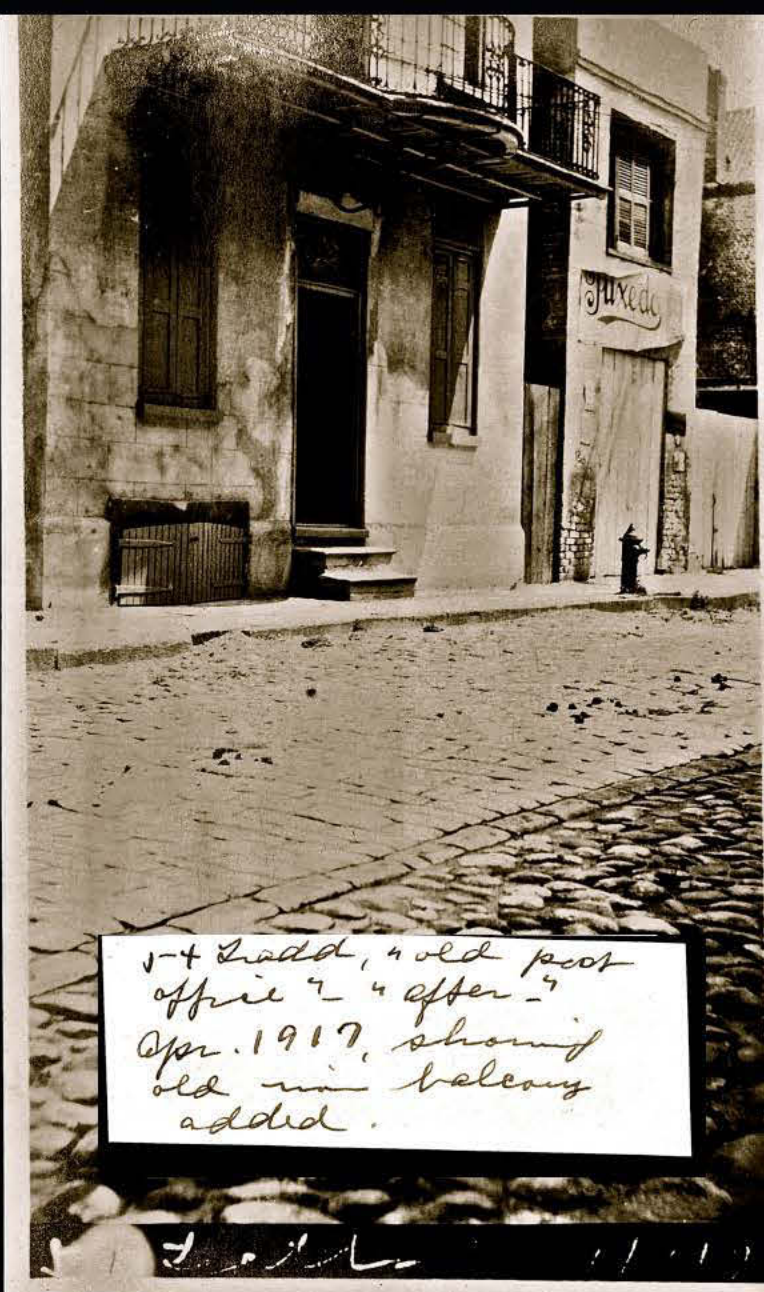 Tuxedo
54 Tradd, "old post
office" - "after -"
Apr. 1917, showing
old iron balcony
added.